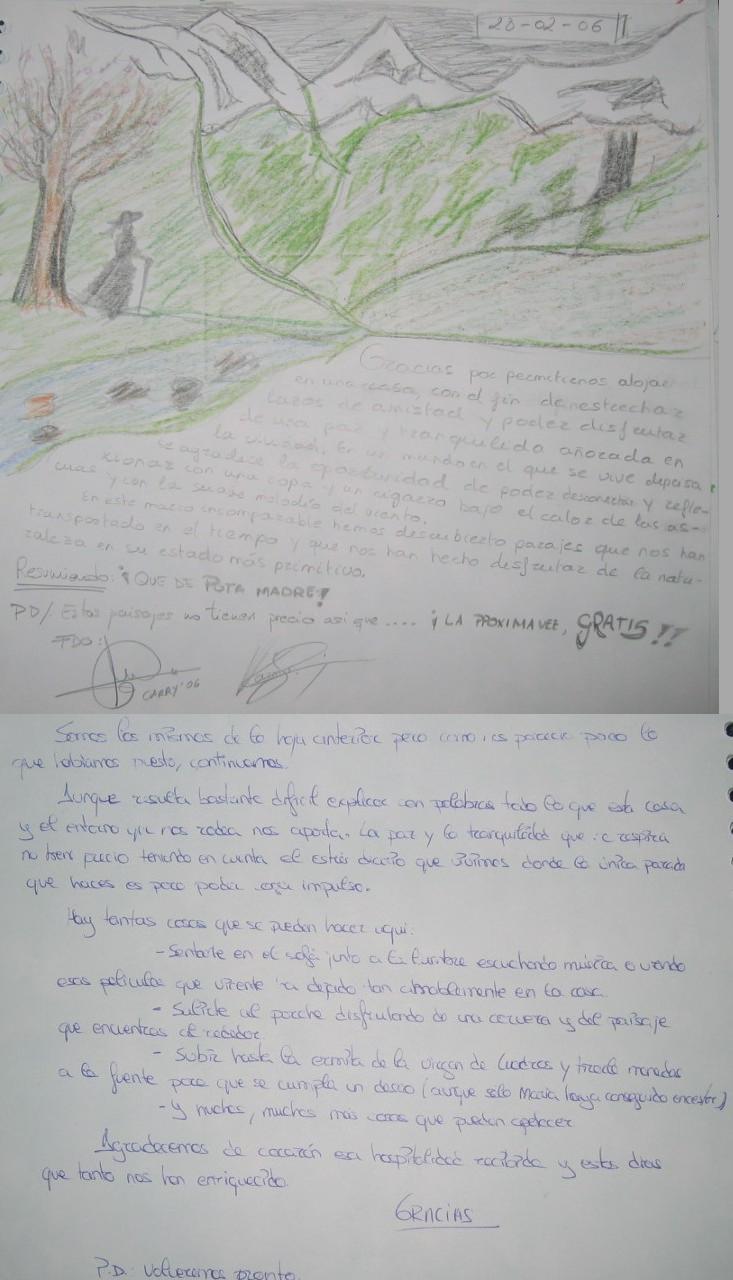 28-02-06
Gracias por permitirnos alojar
en una casa, con el fin de estrechar
lazos de amistad y poder disfrutar
de una paz y tranquilidad añorada en
la ciudad. En un mundo en el que se vive deprisa,
se agradece la oportunidad de poder desconectar y refle-
xionar con una copa y un cigarro bajo el calor de las as-
cuas y con la suave melodía del viento.
En este marco incomparable hemos descubierto parajes que nos han
transportado en el tiempo y que nos han hecho disfrutar de la natu-
raleza en su estado más primitivo.
Resumiendo: ¡QUE DE PUTA MADRE!
PD/. Estos paisajes no tienen precio asi que .... ¡LA PROXIMA VEZ, GRATIS!!
FDO:
CARRY'06
Somos los mismos de la hoja anterior pero como os parece poco lo
que habíamos puesto, continuamos.
Aunque resulta bastante dificil explicar con palabras todo lo que esta casa
y el entorno que nos rodea nos aporta. La paz y la tranquilidad que se respira
no tiene precio teniendo en cuenta el estrés diario que vivimos donde la única parada
que haces es para poder coger impulso.
Hay tantas cosas que se pueden hacer aqui:
- Sentarte en el sofá junto a la lumbre escuchando música o viendo
esas peliculas que Vicente ha dejado tan amablemente en la casa.
- Salirte al porche disfrutando de una cerveza y del paisaje
que encuentras alrededor.
- Subir hasta la ermita de la virgen de Cuadros y tirarle monedas
a la fuente para que se cumpla un deseo (aunque sólo Maria haya conseguido encestar)
- Y muchas, muchas más cosas que pueden apetecer
Agradecemos de corazón esa hospitalidad recibida y estos dias
que tanto nos han enriquecido.
GRACIAS
P.D.: Volveremos pronto.